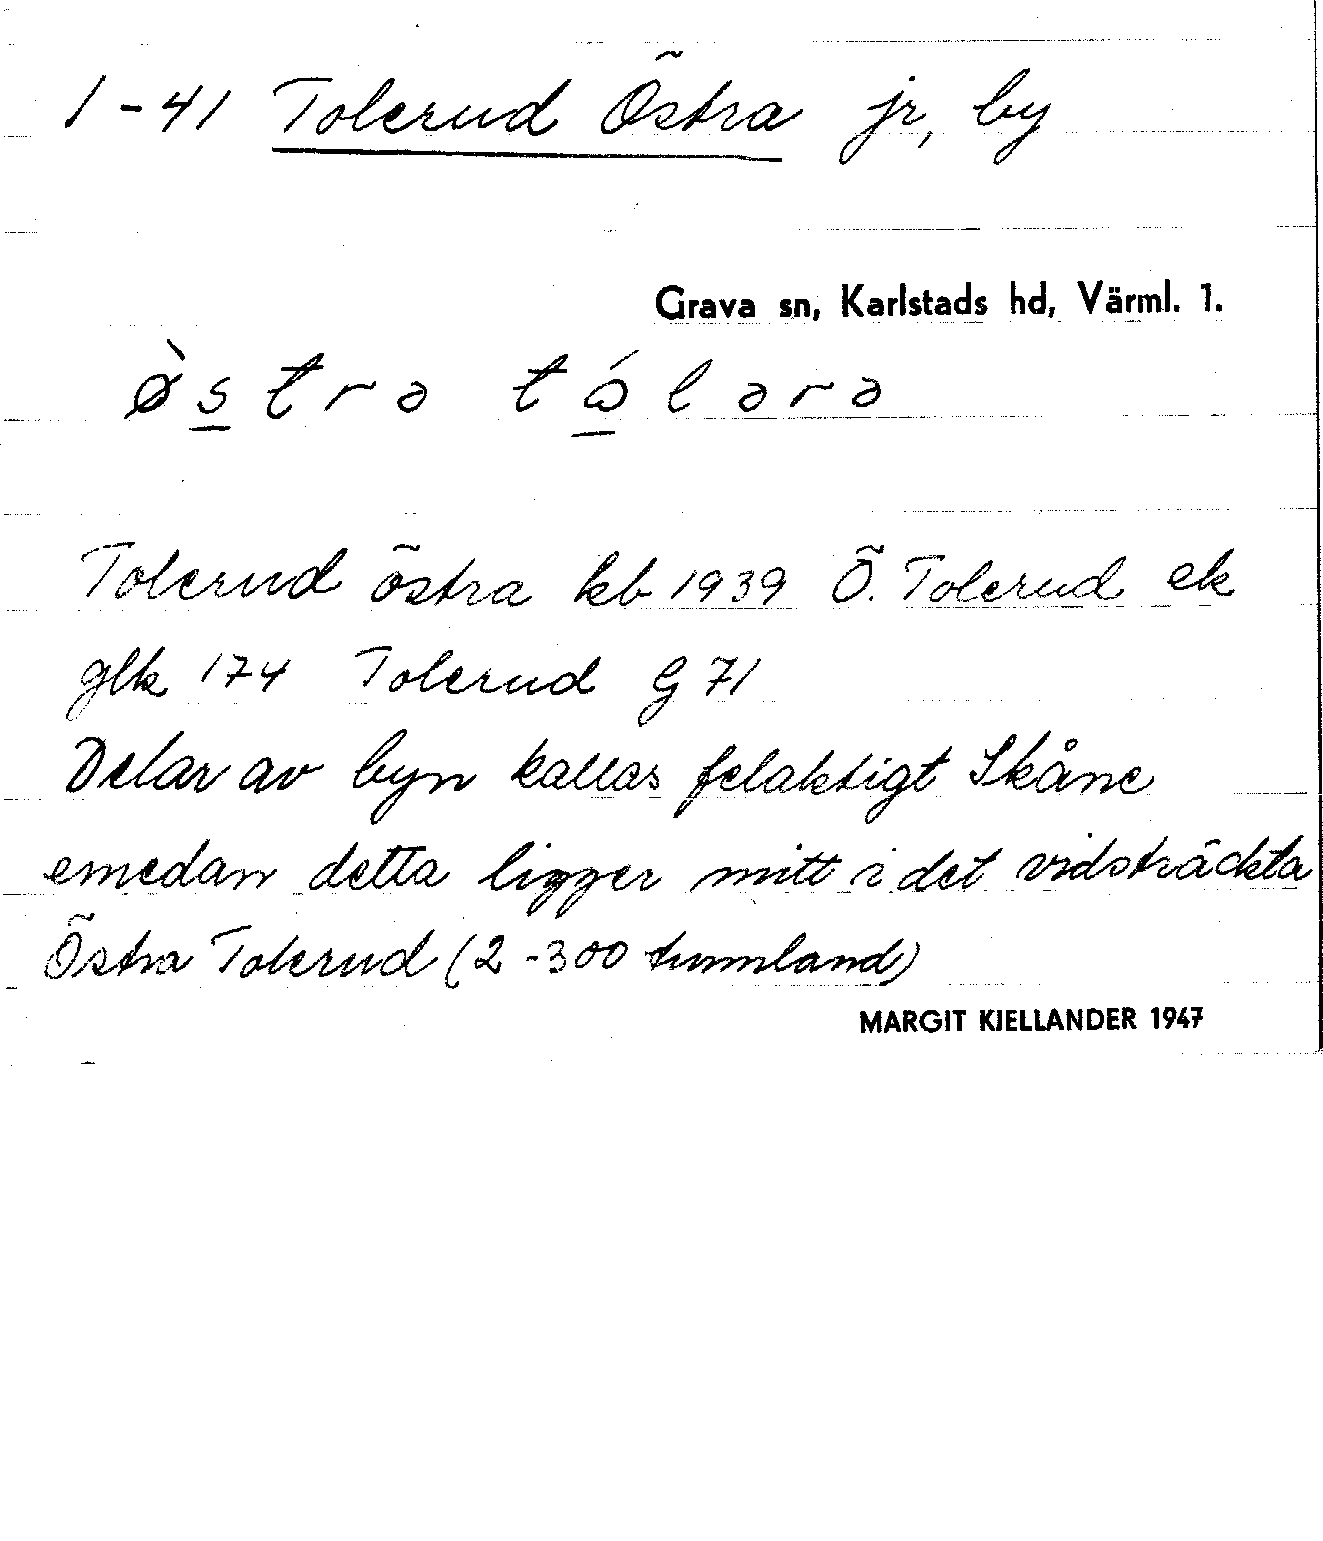 1-41 Tolerud Östra jr, by
Grava sn, Karlstads hd, Värml. 1.
ø̀s̲trə tɷ̲́lərə
Tolerud östra kb 1939 Ö. Tolerud ek
glk 174 Tolerud G 71
Delar av byn kallas felaktigt Skåne
emedan detta ligger mitt i det vidsträckta
Östra Tolerud (2-300 tunnland)
MARGIT KJELLANDER 1947